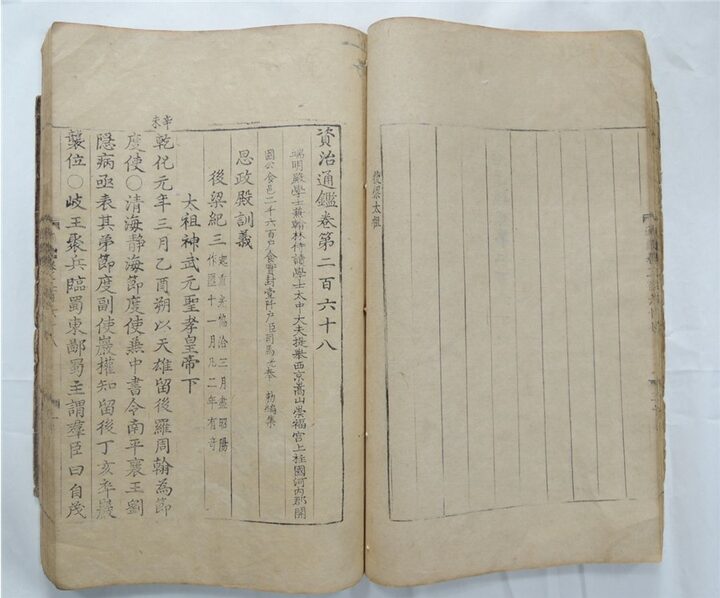 後梁太祖
資治通鑑卷第二百六十八
端明殿學士兼翰林侍讀學士太中大夫提擧西京嵩山崇福宮上柱國河內郡開
國公食邑二千六百戶食實封壹阡戶臣司馬光奉 勅編集
思政殿訓義
後梁紀三 起重光協洽三月盡昭陽
作噩十一月凡二年有奇
太祖神武元聖孝皇帝下
辛未
乾化元年三月乙酉朔以天雄留後羅周翰為節
度使○清海靜海節度使兼中書令南平襄王劉
隱病亟表其弟節度副使巖權知留後丁亥卒巖
襲位○岐王聚兵臨蜀東鄙蜀主謂羣臣曰自茂